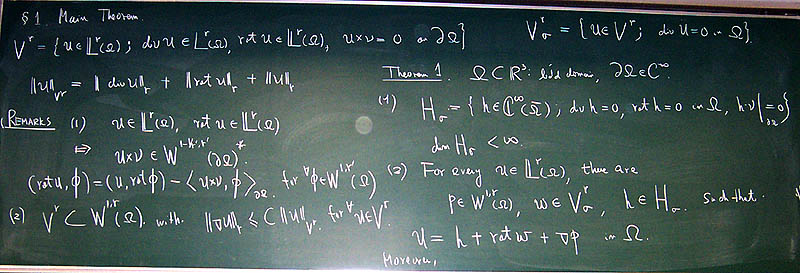 §1. Main Theorem.
V^r = { u ∈ L^r(Ω) ; div u ∈ L^r(Ω), rot u ∈ L^r(Ω), u×ν = 0 on ∂Ω }
‖u‖_{V^r} = ‖ div u‖_r + ‖rot u‖_r + ‖u‖_r
REMARKS (1) u ∈ L^r(Ω), rot u ∈ L^r(Ω)
⇒ u×ν ∈ W^{1-1/r', r'}(∂Ω)^*
(rot u, φ) = (u, rot φ) − <u×ν, φ>_{∂Ω} for ∀φ ∈ W^{1,r'}(Ω)
(2) V^r ⊂ W^{1,r}(Ω) with ‖∇u‖_r ≤ C‖u‖_{V^r} for ∀u ∈ V^r
V^r_σ = { u ∈ V^r ; div u = 0 in Ω }
Theorem 1. Ω ⊂ R^3 : b'd'd domain, ∂Ω ∈ C^∞
(1) H_σ = { h ∈ C^∞(Ω̄) ; div h = 0, rot h = 0 in Ω, h·ν|_{∂Ω} = 0 }
dim H_σ < ∞.
(2) For every u ∈ L^r(Ω), there are
p ∈ W^{1,r}(Ω), w ∈ V^r_σ, h ∈ H_σ such that
u = h + rot w + ∇p in Ω.
Moreover,